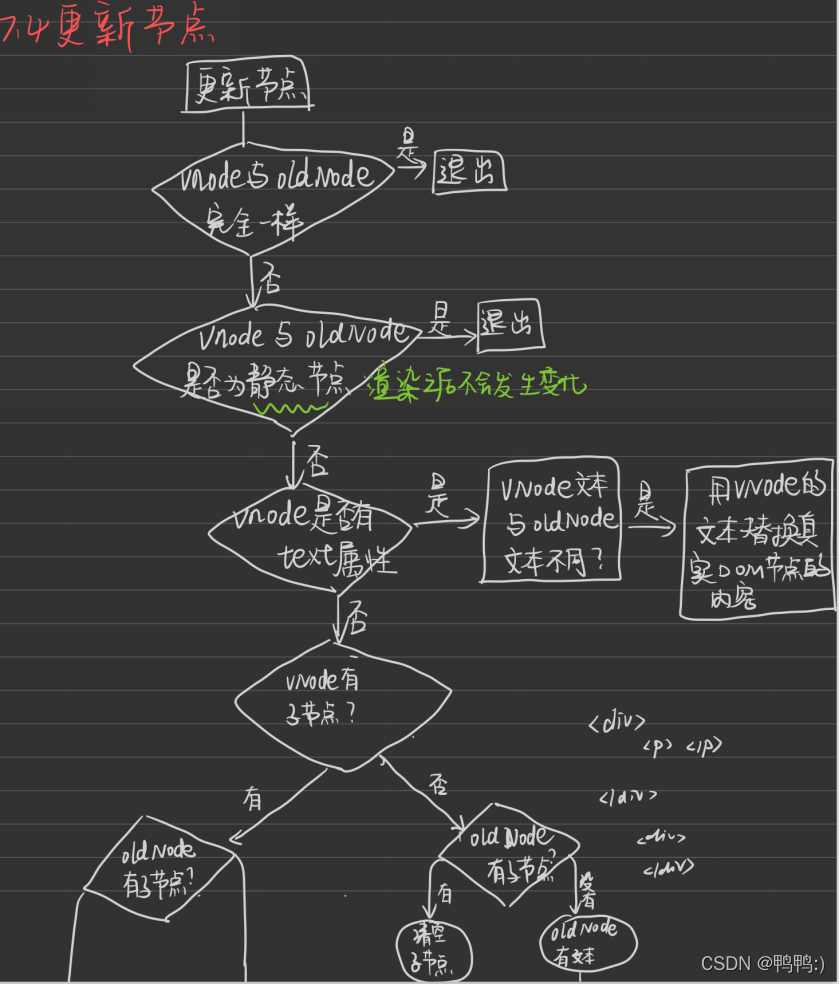 7.4更新节点
更新节点
vnode与oldNode
完全一样
是
退出
否
vnode与oldNode
是否为静态节点
是
退出
渲染之后不会发生变化
否
vnode是否有
text属性
是
VNode文本
与oldNode
文本不同?
是
用VNode的
文本替换真
实DOM节点的
内容
否
VNode有
子节点?
<div>
<p> </p>
</div>
<div>
</div>
有
否
oldNode
有子节点?
oldNode
有子节点?
有
没有
清空
子节点
oldNode
有文本
CSDN @鸭鸭:)